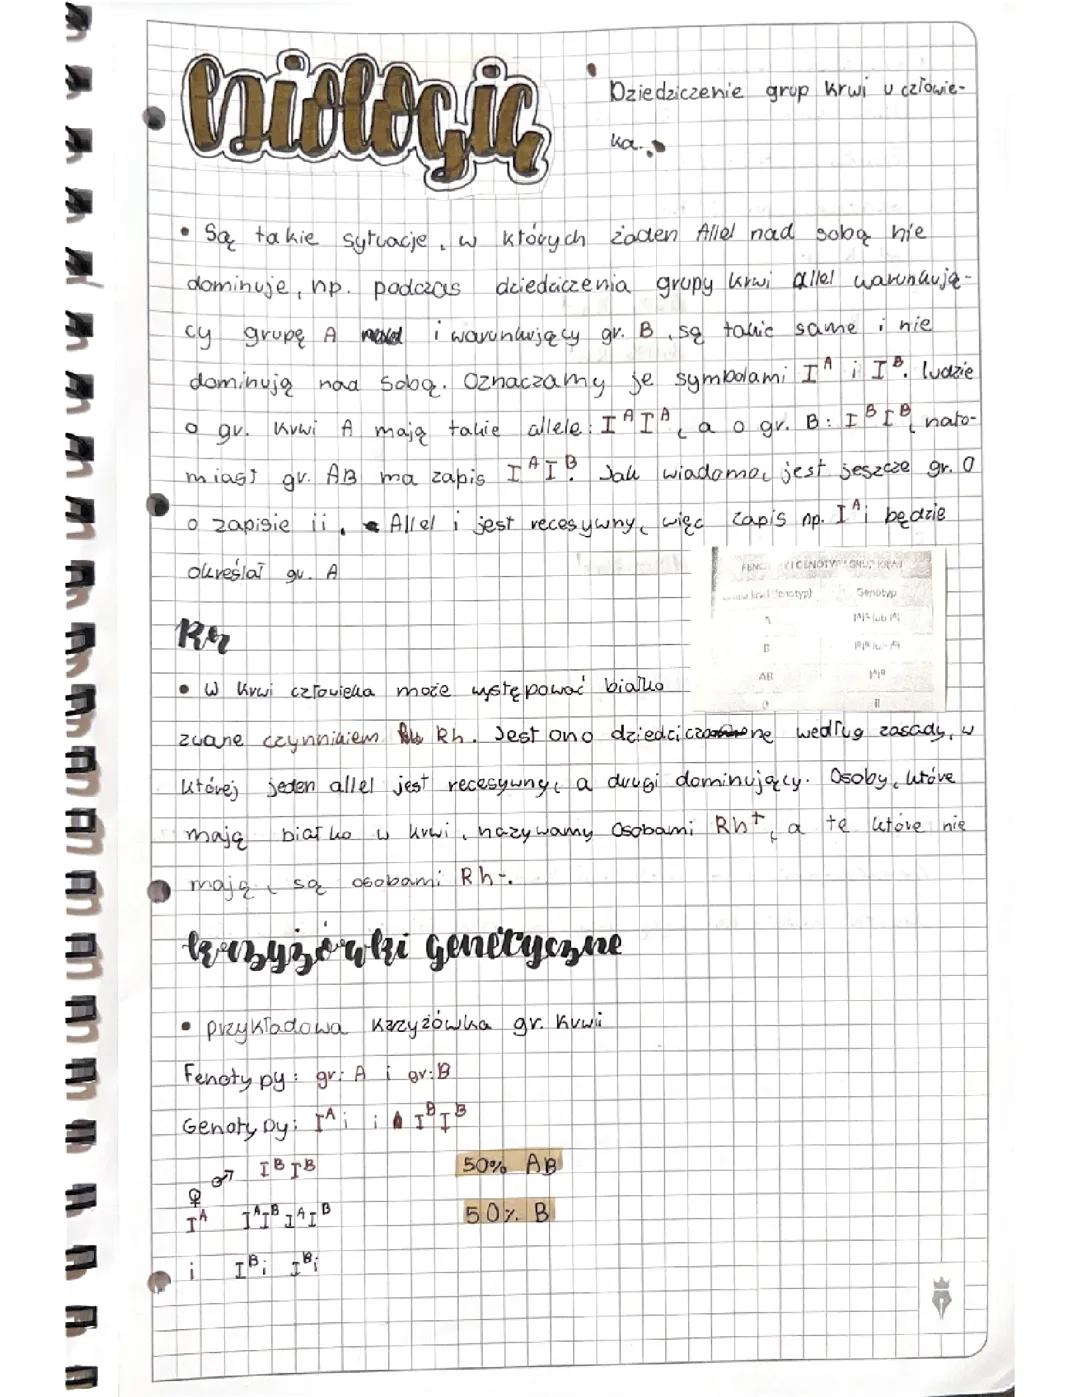 biologia
Dziedziczenie grup krwi u człowie-
ka.
• Są takie sytuacje, w których żaden Allel nad sobą nie
dominuje, np. podczas dziedziczenia grupy krwi allel warunkują-
cy grupę A i warunkujący gr. B, są takie same i nie
dominują nad sobą. Oznaczamy je symbolami I^A i I^B. ludzie
o gr. krwi A mają takie allele: I^A I^A, a o gr. B: I^B I^B, nato-
miast gr. AB ma zapis I^A I^B. Jak wiadomo, jest jeszcze gr. 0
o zapisie ii. Allel i jest recesywny, więc zapis np. I^A i będzie
określał gr. A
GRUP KRWI
(fenotyp) Genotyp
A I^A I^A lub I^A i
B
AB I^A I^B
0 ii
Rh
• W krwi człowieka może występować białko
zwane czynnikiem Rh. Jest ono dziedziczone według zasady, w
której jeden allel jest recesywny, a drugi dominujący. Osoby, które
mają białko w krwi, nazywamy Osobami Rh+, a te które nie
mają, są osobami Rh-.
krzyżówki genetyczne
• przykładowa krzyżówka gr. krwi
Fenotypy: gr: A i gr: B
Genotypy: I^A i i I^B I^B
♂ I^B I^B 50% AB
♀
I^A I^A I^B I^A I^B 50% B
i I^B i I^B i